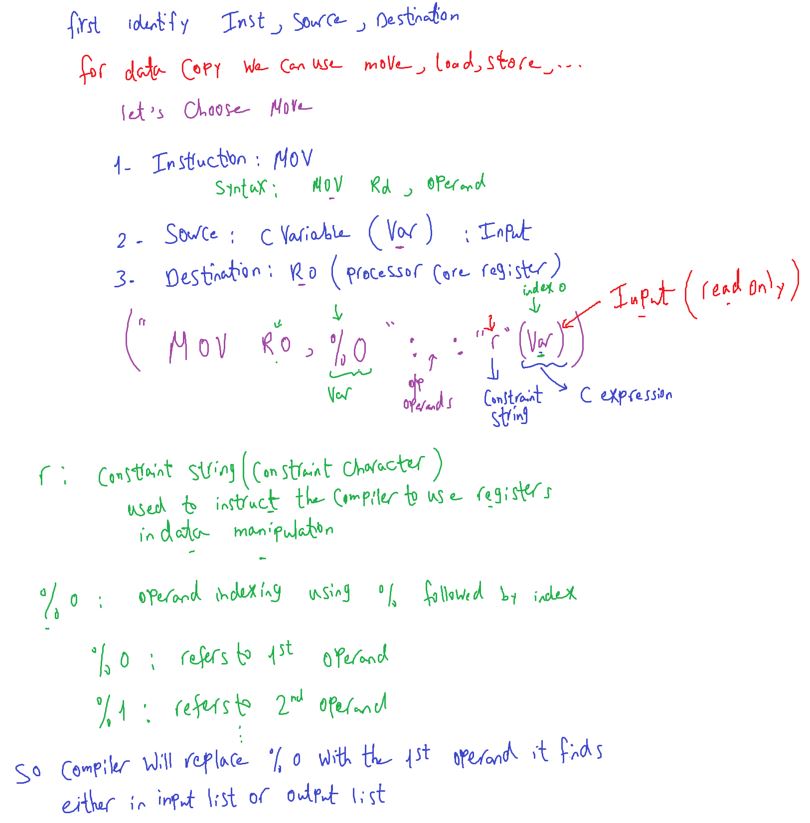 first identify Inst, Source, Destination
for data Copy we can use move, load, store, ...
let's Choose Move
1- Instuction: MOV
Syntax: MOV Rd, operand
2- Source: C Variable (Var) : Input
3- Destination: R0 (processor Core register)
index 0
Input (read only)
(" MOV R0, %0 " : : "r" (Var))
Var
o/p operands
Constraint string
C expression
r: Constraint string (Constraint Character)
used to instruct the Compiler to use registers
in data manipulation
%0 : operand indexing using % followed by index
%0 : refers to 1st operand
%1 : refers to 2nd operand
⋮
So Compiler will replace %0 with the 1st operand it finds
either in input list or output list